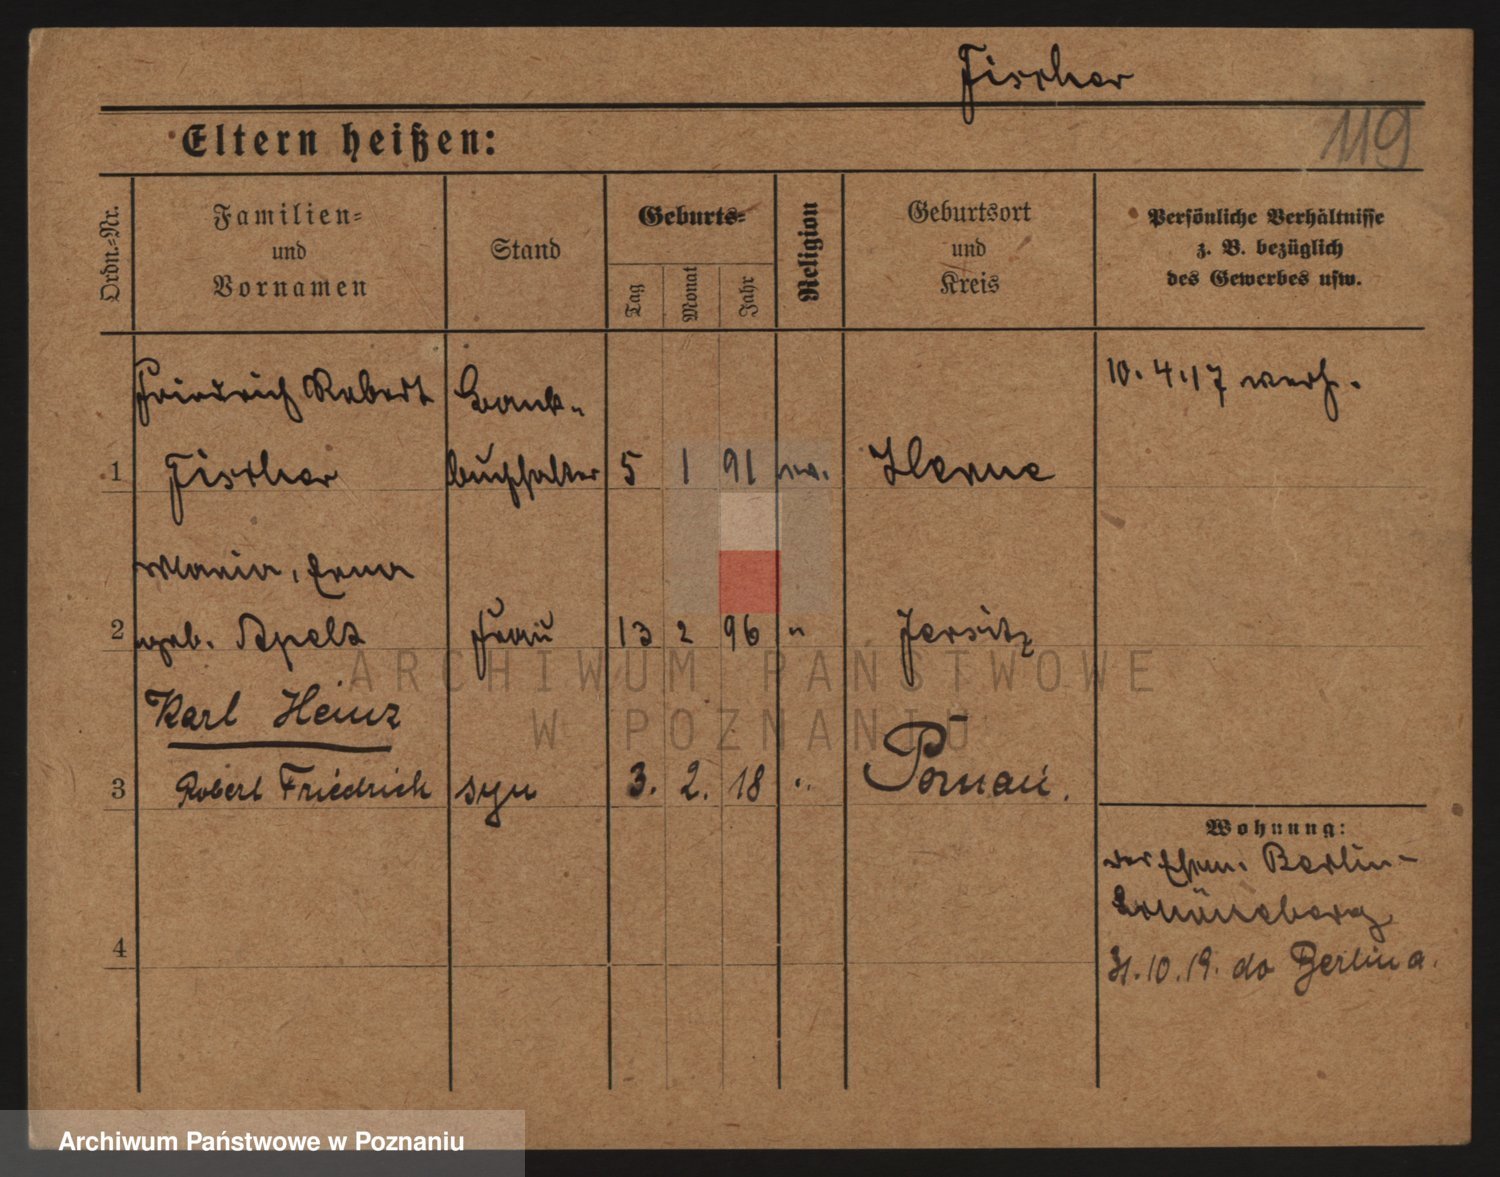 Fischer
119
Eltern heißen:
Ordn.-Nr.
Familien-
und
Vornamen
Stand
Geburts-
Tag
Monat
Jahr
Religion
Geburtsort
und
Kreis
Persönliche Verhältnisse
z. B. bezüglich
des Gewerbes usw.
Friedrich Robert Bank-
10. 4. 17 verh.
1 Fischer buchhalter 5 1 91 Herne
Maria, Erna
2 geb. Apelt Frau 13 2 96 " Jersitz
ARCHIWUM PAŃSTWOWE
W POZNANIU
Karl Heinz
3 Robert Friedrich syn 3. 2. 18 " Poznań.
Wohnung:
der Ehem. Berlin-
Schöneberg
4
31. 10. 19. do Berlina.
Archiwum Państwowe w Poznaniu